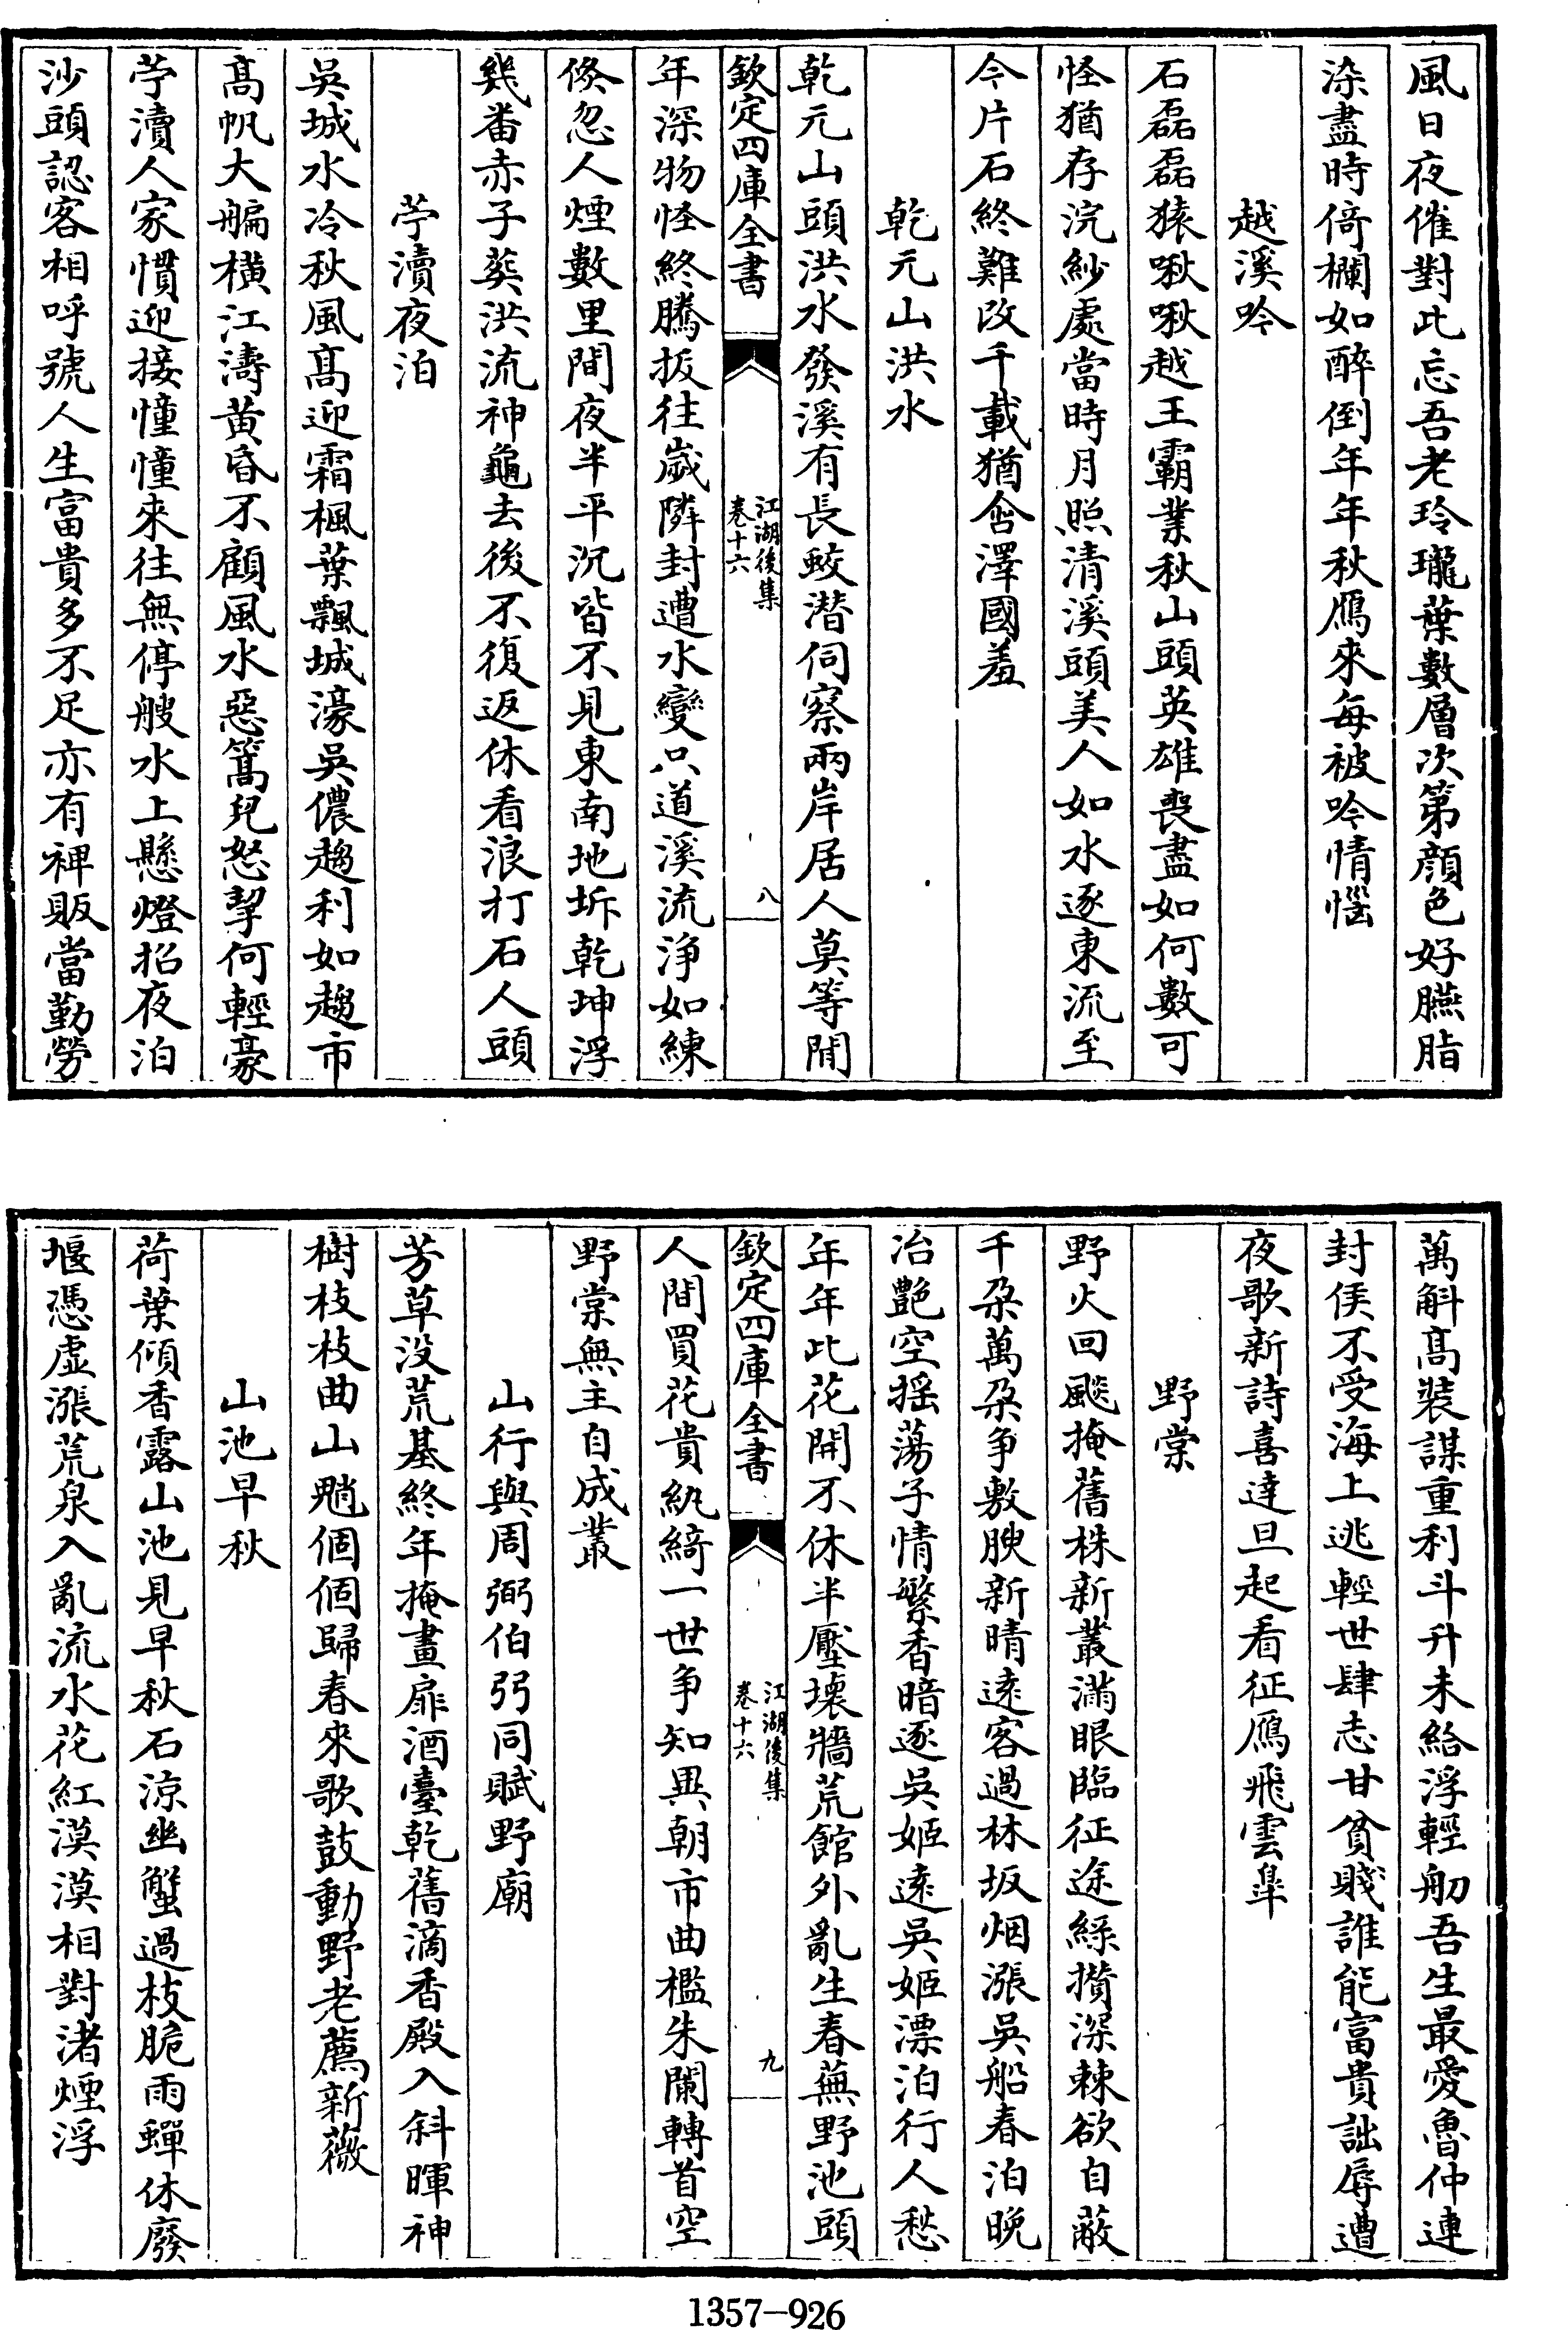 風日夜催對此忘吾老玲瓏葉數層次第顔色好臙脂
染盡時倚欄如醉倒年年秋鴈來每被吟情惱
越溪吟
石磊磊猿啾啾越王霸業秋山頭英雄喪盡如何數可
怪猶存浣紗處當時月照清溪頭美人如水逐東流至
今片石終難改千載猶含澤國羞
乾元山洪水
乾元山頭洪水發溪有長蛟潜伺察兩岸居人莫等閒
欽定四庫全書
江湖後集
卷十六
八
年深物怪終騰拔往歲隣封遭水變只道溪流浄如練
倐忽人煙數里間夜半平沉皆不見東南地坼乾坤浮
幾番赤子葬洪流神龜去後不復返休看浪打石人頭
苧瀆夜泊
吳城水冷秋風髙迎霜楓葉飄城濠吳儂趨利如趨市
髙帆大艑橫江濤黃昏不顧風水惡篙兒怒挐何輕豪
苧瀆人家慣迎接憧憧來往無停艘水上懸燈招夜泊
沙頭認客相呼號人生富貴多不足亦有裨販當勤勞
萬斛髙装謀重利斗升未給浮輕舠吾生最愛魯仲連
封侯不受海上逃輕世肆志甘貧賤誰能富貴詘辱遭
夜歌新詩喜達旦起看征鴈飛雲臯
野棠
野火回颷掩舊株新叢滿眼臨征途綠攢深棘欲自蔽
千朶萬朶争敷腴新晴遠客過林坂烟漲吳船春泊晚
冶艶空揺蕩子情繁香暗逐吳姬遠吳姬漂泊行人愁
年年此花開不休半壓壞牆荒館外亂生春蕪野池頭
欽定四庫全書
江湖後集
卷十六
九
人間買花貴紈綺一世争知異朝市曲檻朱闌轉首空
野棠無主自成叢
山行與周弼伯弜同賦野廟
芳草没荒基終年掩畫扉酒臺乾舊滴香殿入斜暉神
樹枝枝曲山魈個個歸春來歌鼓動野老薦新薇
山池早秋
荷葉傾香露山池見早秋石涼幽蟹過枝脆雨蟬休廢
堰憑虛漲荒泉入亂流水花紅漠漠相對渚煙浮
1357-926